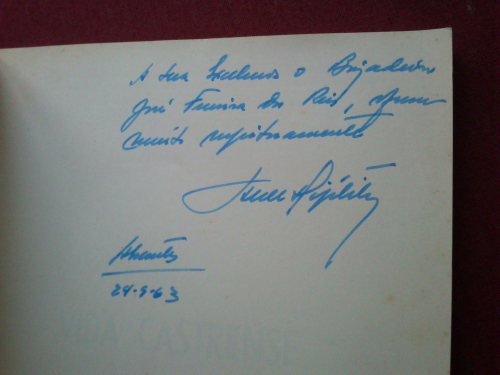 A Sua Excelência o Brigadeiro
José Ferreira dos Reis, oferece
muito respeitosamente
24-9-63
VIDA CASTRENSE